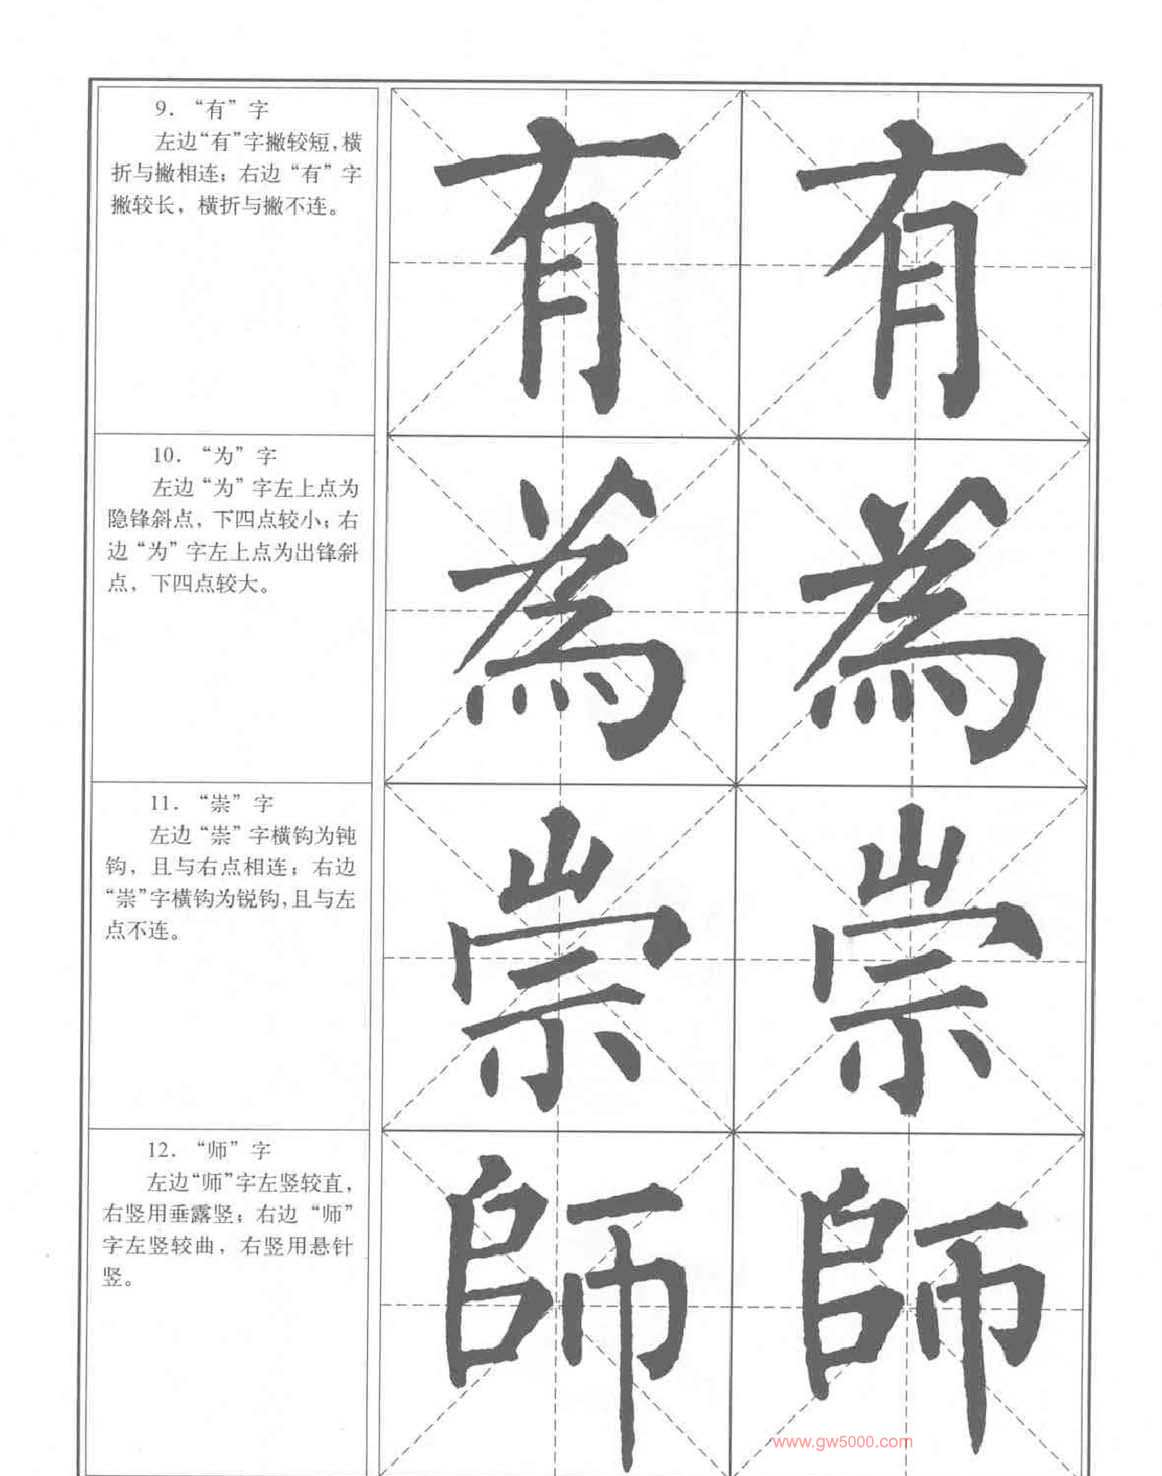 9. “有”字
左边“有”字撇较短，横
折与撇相连；右边“有”字
撇较长，横折与撇不连。
有 有
10. “为”字
左边“为”字左上点为
隐锋斜点，下四点较小；右
边“为”字左上点为出锋斜
点，下四点较大。
為 為
11. “崇”字
左边“崇”字横钩为钝
钩，且与右点相连；右边
“崇”字横钩为锐钩，且与左
点不连。
崇 崇
12. “师”字
左边“师”字左竖较直，
右竖用垂露竖；右边“师”
字左竖较曲，右竖用悬针
竖。
師 師
www.gw5000.com